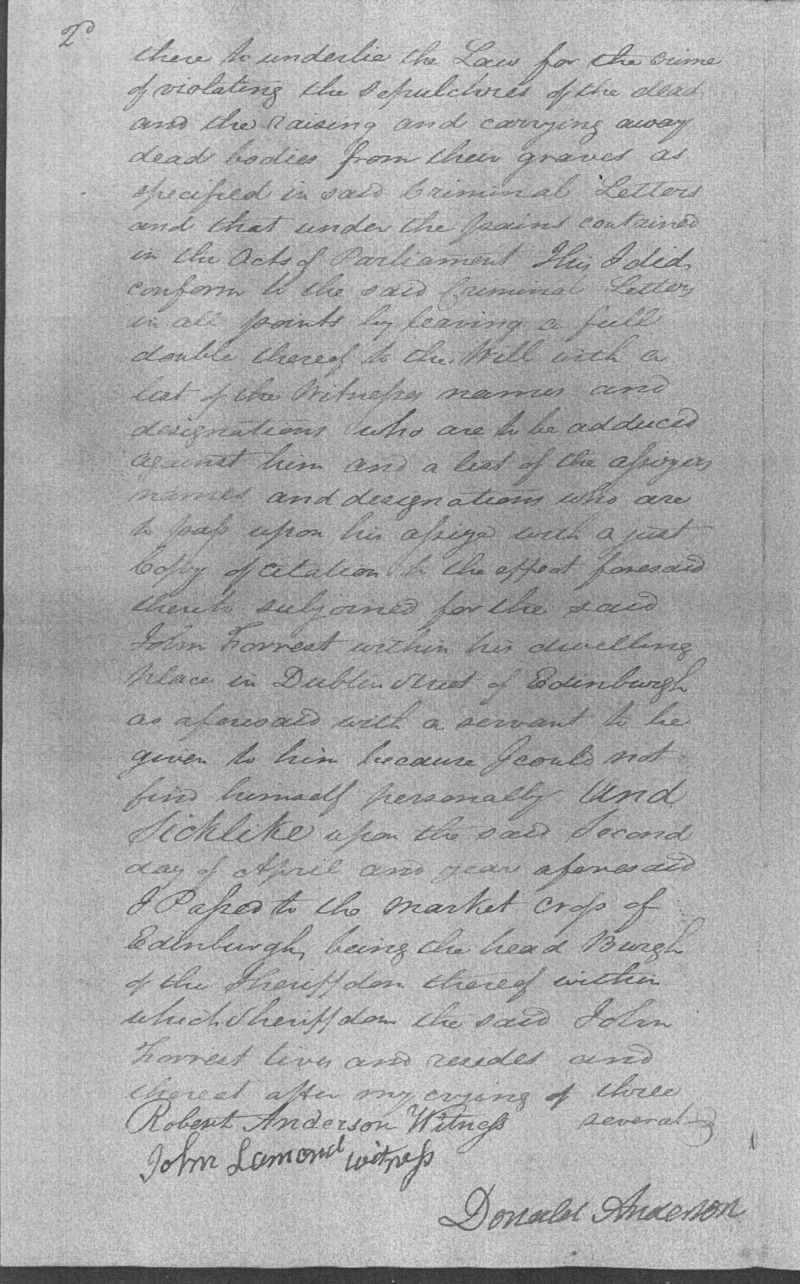 2d
there to underlie the Law for the crime
of violating the Sepulchres of the dead
and the raising and carrying away
dead bodies from their graves as
specified in said Criminal Letters
and that under the pains contained
in the Acts of Parliament This I did
conform to the said Criminal Letters
in all points by leaving a full
double thereof to the Will with a
list of the Witnesses names and
designations who are to be adduced
against him and a list of the assizers
names and designations who are
to pass upon his assize with a just
Copy of citation to the effect foresaid
thereto subjoined for the said
John Forrest within his dwelling
place in Dublin Street of Edinburgh
as aforesaid with a servant to be
given to him because I could not
find himself personally And
Sicklike upon the said Second
day of April and year aforesaid
I Passed to the market cross of
Edinburgh being the head Burgh
of the Sheriffdom thereof within
which Sheriffdom the said John
Forrest lives and resides and
thereat after my crying of three
Robert Anderson Witness several
John Lamond witness
Donald Anderson